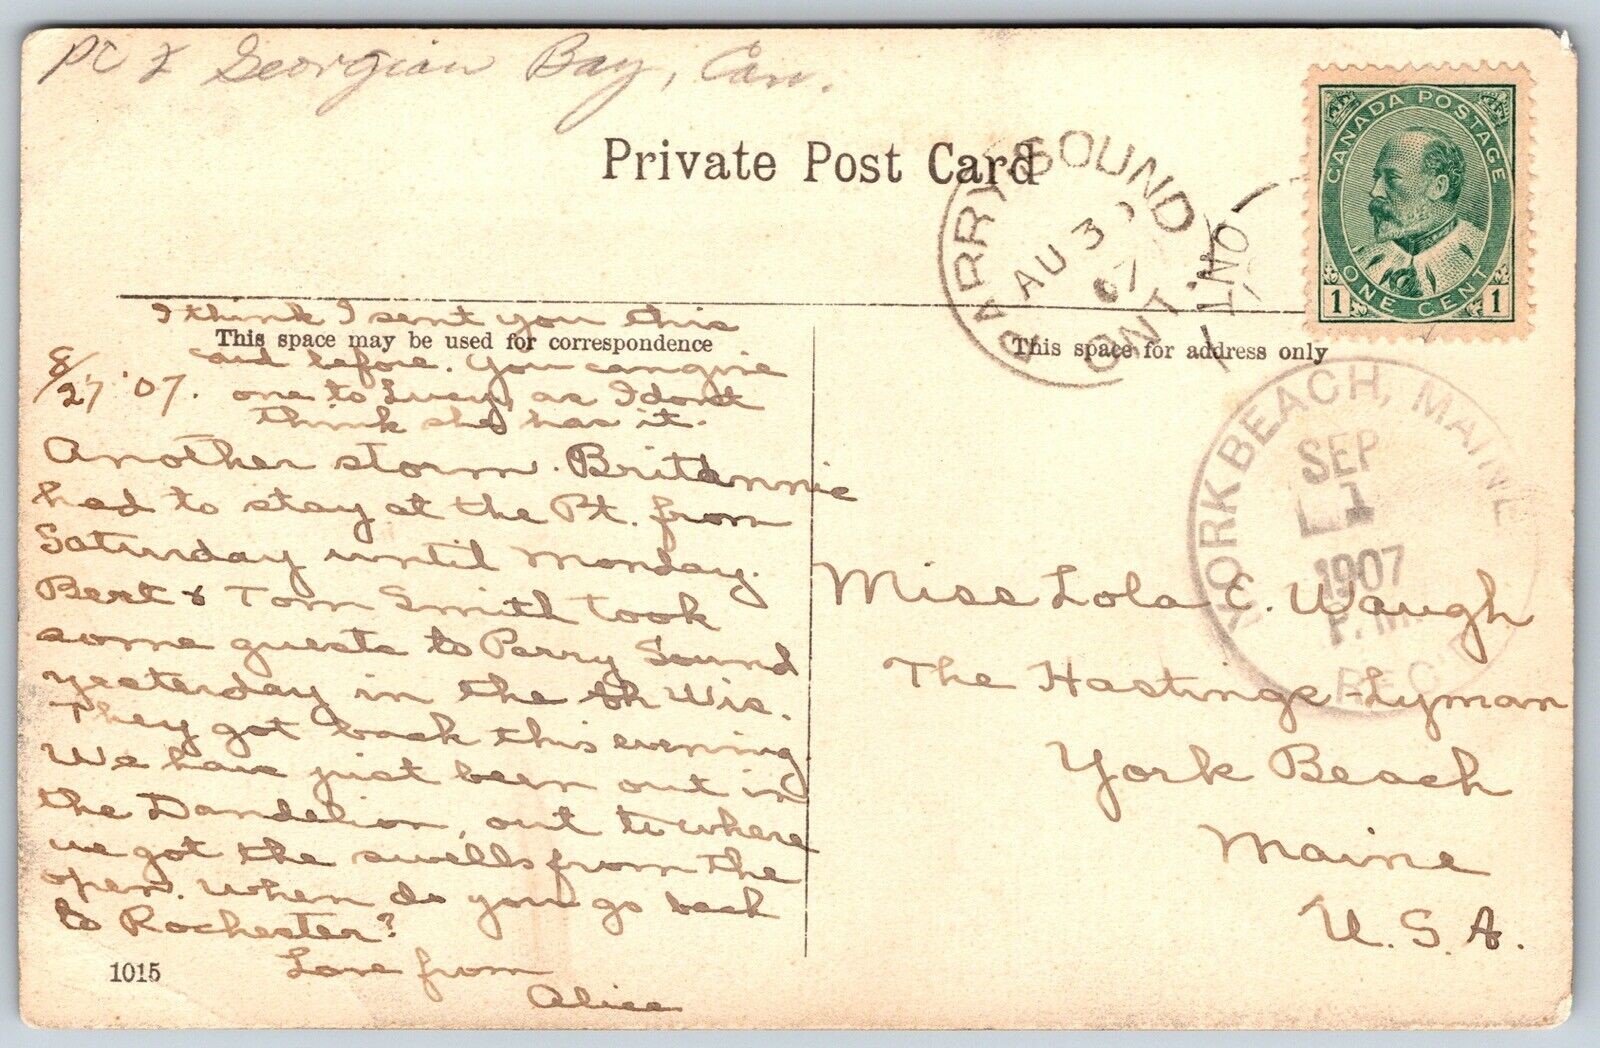 Georgian Bay, Can.
Private Post Card
PARRY SOUND
AU 3
07
ONT
ONT.
CANADA POSTAGE
1 ONE CENT 1
I think I sent you this
This space may be used for correspondence
card before. You can give
8/27 '07. one to Lucy, as I don't
think she has it.
Another storm. Britannic
had to stay at the Pt. from
Saturday until Monday.
Bert & Tom Smith took
some guests to Parry Sound
yesterday in the Wis.
They got back this evening
We have just been out in
the Dandelion, out to where
we got the swells from the
open. When do you go back
to Rochester?
Love from
Alice
1015
This space for address only
YORK BEACH, MAINE
SEP
1
1907
P.M.
REC'D
Miss Lola E. Waugh
The Hastings-Lyman
York Beach
Maine
U.S.A.